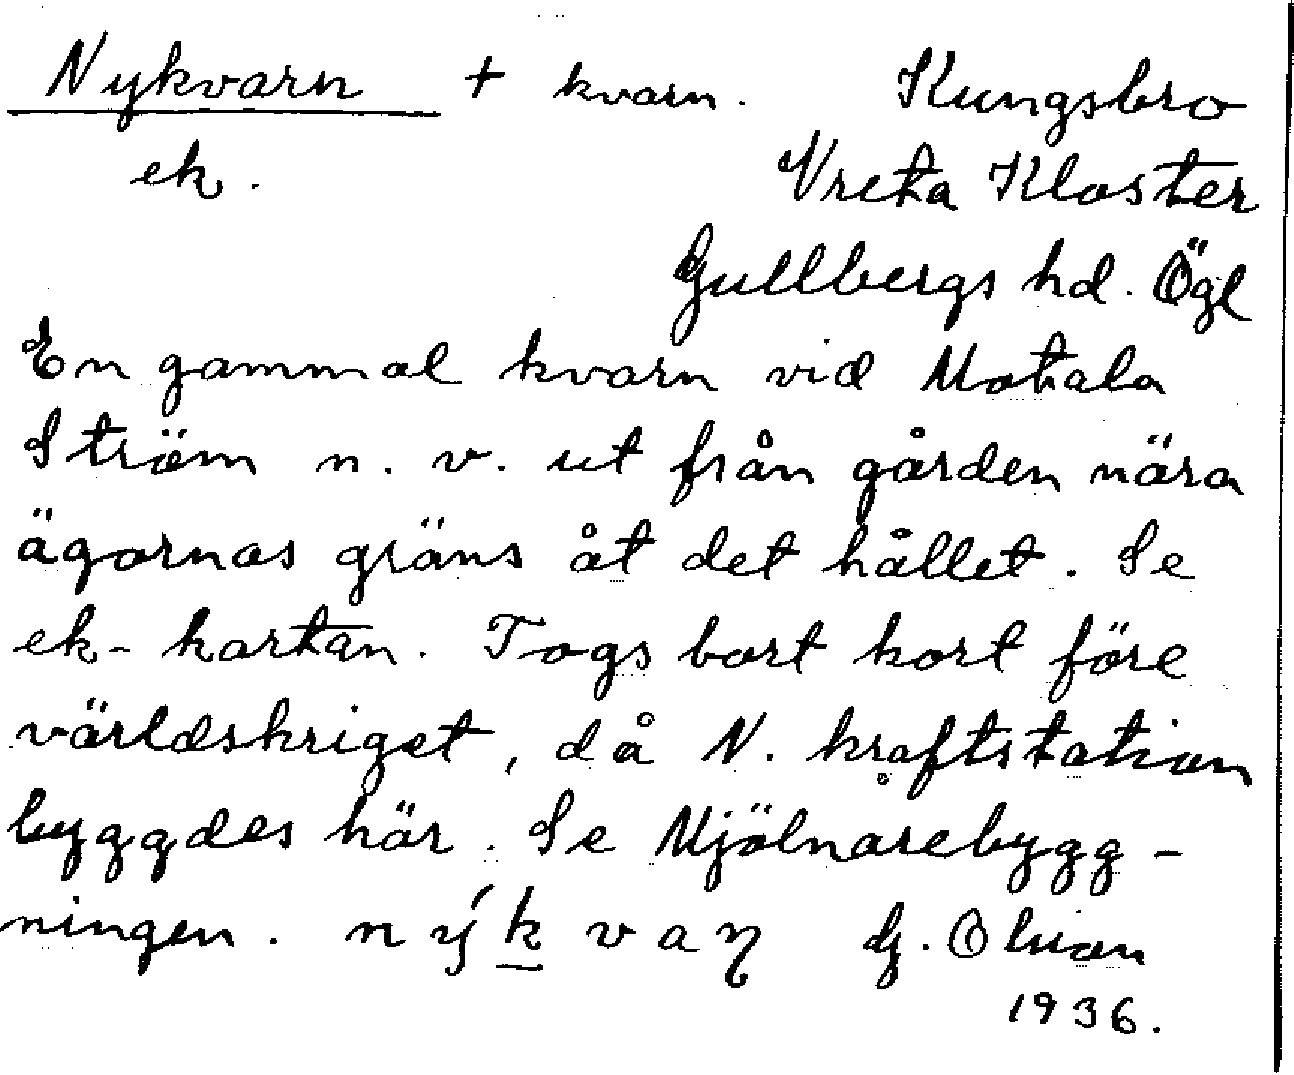 Nykvarn + kvarn. Kungsbro
ek. Vreta Kloster
Gullbergs hd. Ögl
En gammal kvarn vid Motala
Ström n. v. ut från gården nära
ägornas gräns åt det hållet. Se
ek-kartan. Togs bort kort före
världskriget, då N. kraftstation
byggdes här. Se Mjölnarebygg-
ningen. nýk̲vaꞃ G.
1936.